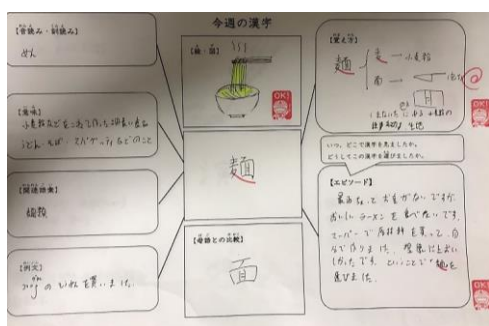 今週の漢字
【音読み・訓読み】
めん
【意味】
小麦粉などをこねて作った細長い食品
うどん、そば・スパゲーティなどのこと
【関連語彙】
麺類
【例文】
300gのひき麺を買いました。
【絵・図】
麺
【母語との比較】
面
【覚え方】
麺
麦 小麦粉
面
いつ、どこで漢字を見ましたか。
どうしてこの漢字を選びましたか。
【エピソード】
最近
お金がないですが、
おいしいラーメンを食べたいです。
スーパーで原材料を買って、自
分で作りました。
しかったです。ということで「麺」を
選びました。
OK!
OK!
OK!